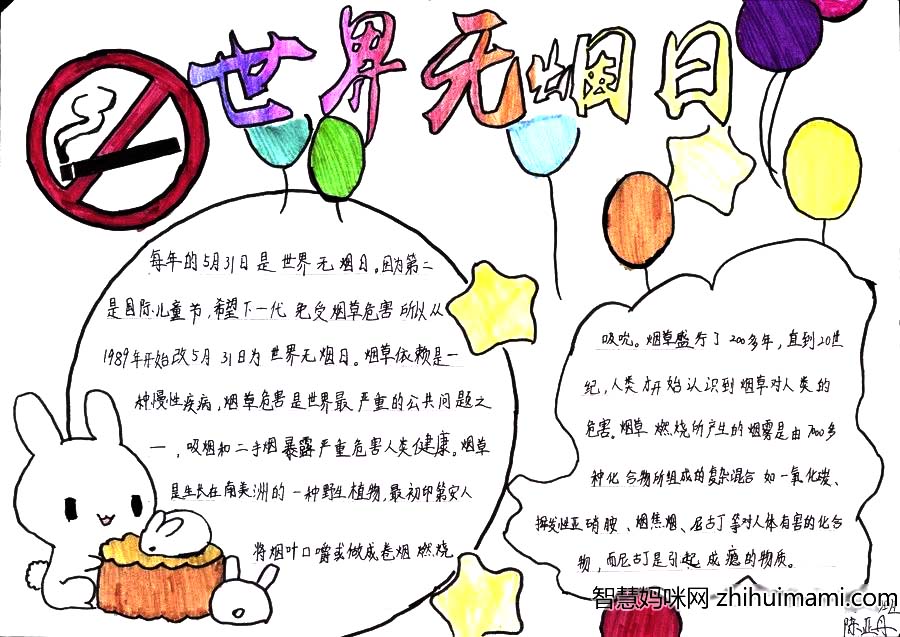 世界无烟日
每年的5月31日是世界无烟日。因为第二
是国际儿童节,希望下一代免受烟草危害所以从
1989年开始改5月31日为世界无烟日。烟草依赖是一
种慢性疾病,烟草危害是世界最严重的公共问题之
一,吸烟和二手烟暴露严重危害人类健康。烟草
是生长在南美洲的一种野生植物,最初印第安人
将烟叶口嚼或做成卷烟燃烧
吸吮。烟草盛行了200多年,直到20世
纪,人类才开始认识到烟草对人类的
危害。烟草燃烧所产生的烟雾是由7000多
种化合物所组成的复杂混合如一氧化碳、
挥发性亚硝胺、烟焦烟、尼古丁等对人体有害的化合
物,而尼古丁是引起成瘾的物质。
智慧妈咪网 zhihuimami.com
陈亚丹